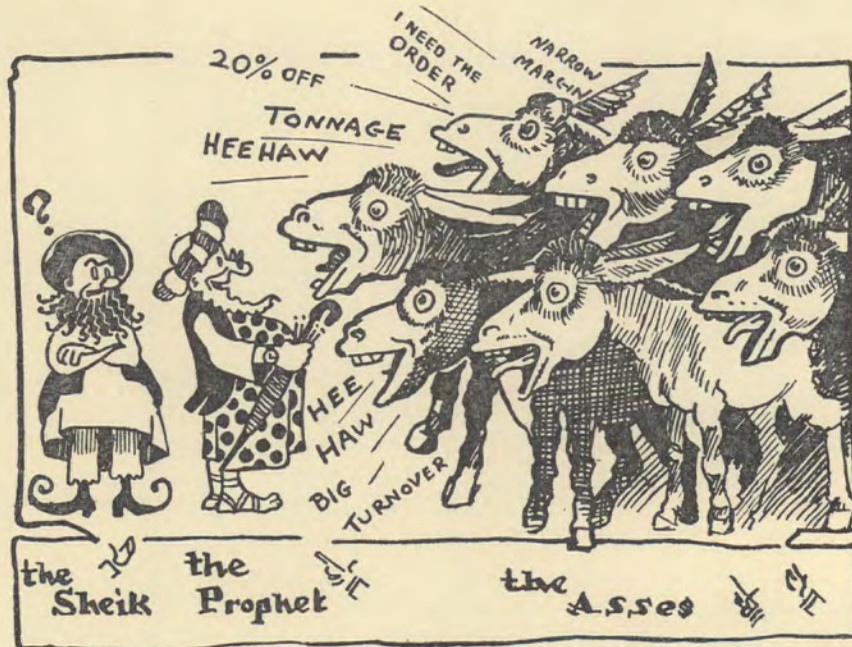 I NEED THE
ORDER
NARROW
MARGIN
20% OFF
TONNAGE
HEE HAW
?
HEE
HAW
BIG
TURNOVER
the
Sheik
the
Prophet
the
Asses